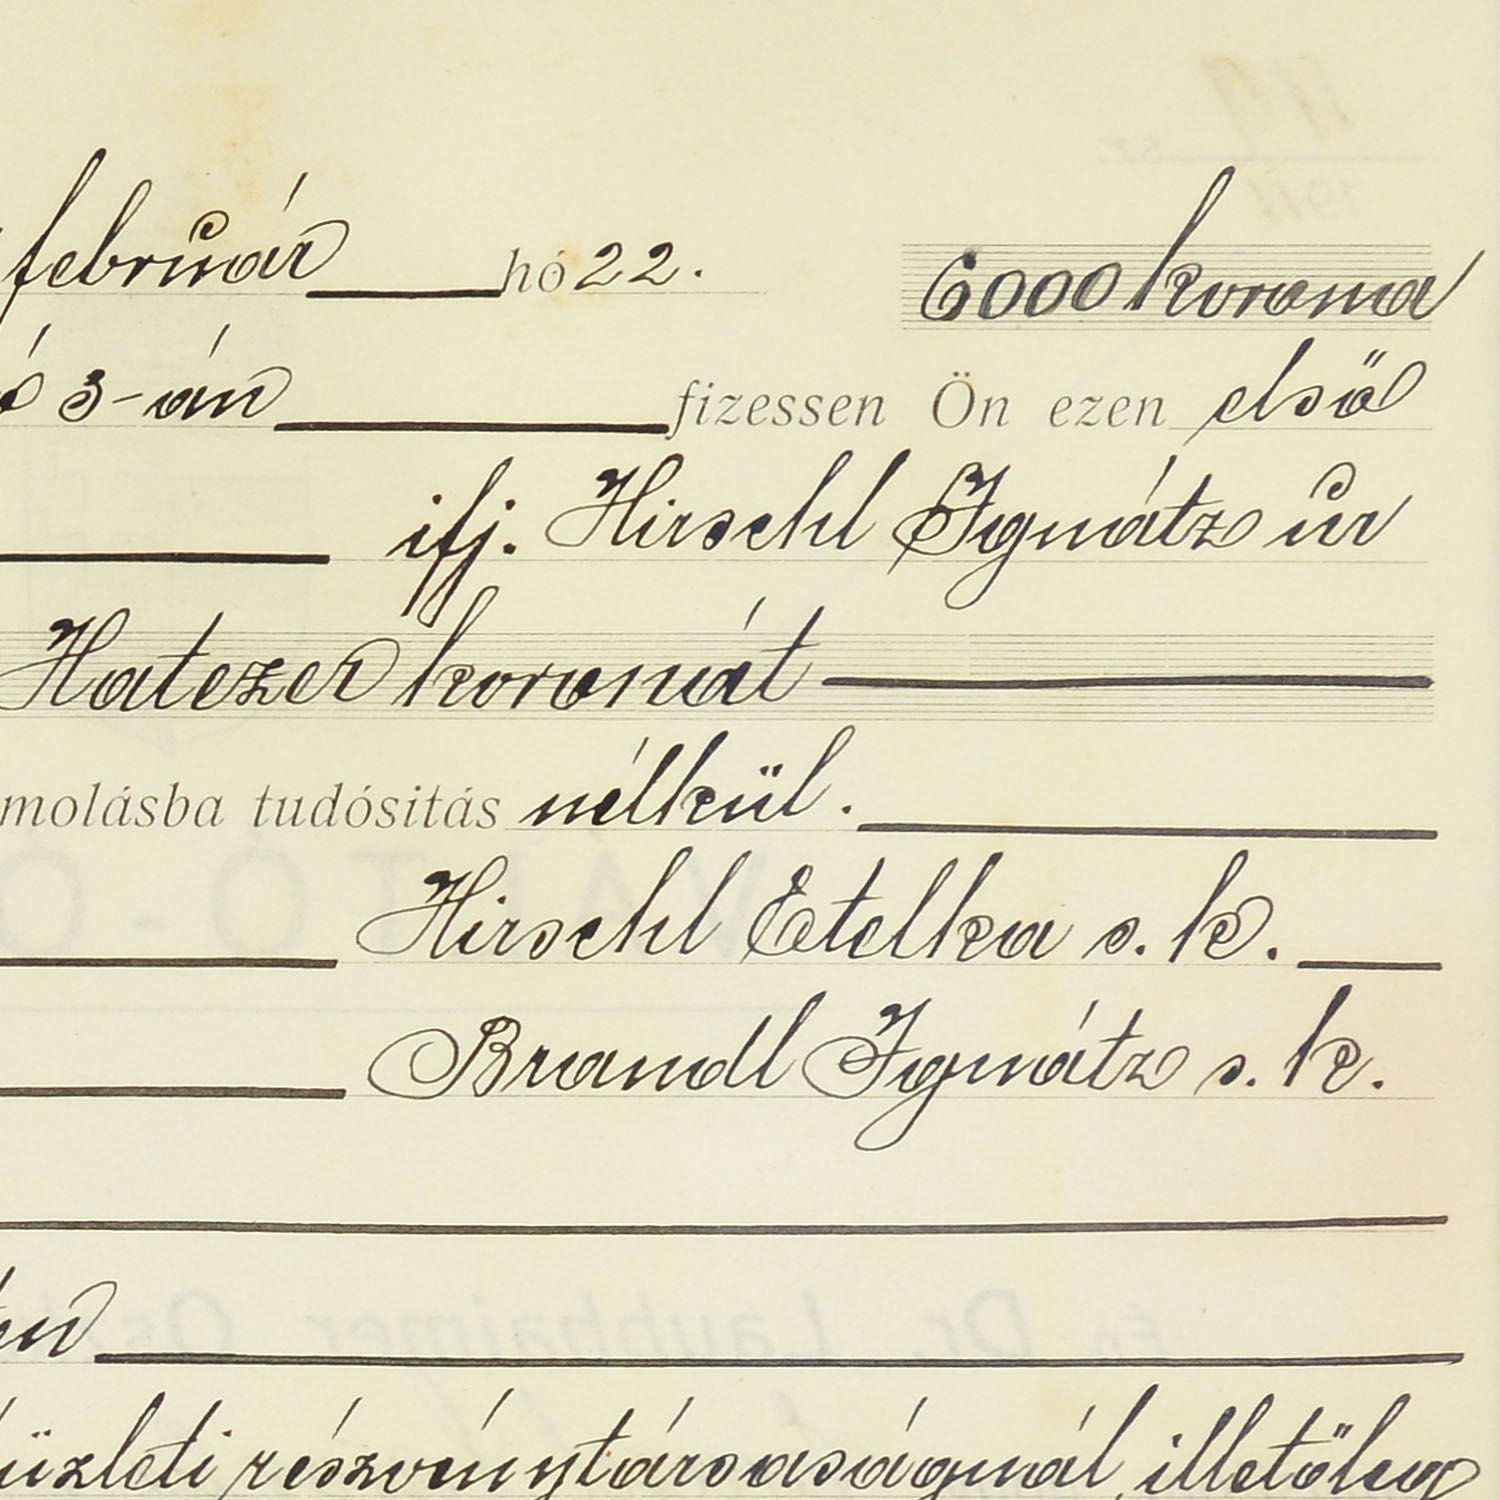 február hó 22. 6000 korona
3-án fizessen Ön ezen első
ifj. Hirschl Ignátz úr
Hatezer koronát
molásba tudósitás nélkül.
Hirschl Etelka s. k.
Brandl Ignátz s. k.
üzleti részvénytársaságnál, illetőleg